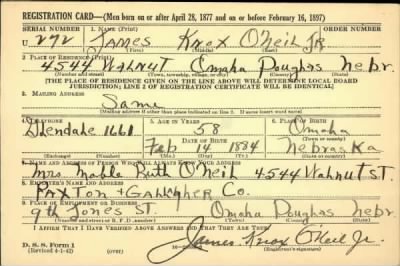 REGISTRATION CARD—(Men born on or after April 28, 1877 and on or before February 16, 1897)
SERIAL NUMBER 1. NAME (Print) ORDER NUMBER
U 292 JAMES Knox O'Neil JR
(First) (Middle) (Last)
2. PLACE OF RESIDENCE (Print)
4544 WALNUT Omaha Douglas Nebr
(Number and street) (Town, township, village, or city) (County) (State)
[THE PLACE OF RESIDENCE GIVEN ON THE LINE ABOVE WILL DETERMINE LOCAL BOARD
JURISDICTION; LINE 2 OF REGISTRATION CERTIFICATE WILL BE IDENTICAL]
3. MAILING ADDRESS
Same
[Mailing address if other than place indicated on line 2. If same insert word same]
4. TELEPHONE 5. AGE IN YEARS 6. PLACE OF BIRTH
Glendale 1661 58 Omaha
DATE OF BIRTH (Town or county)
Feb 14 1884 Nebraska
(Exchange) (Number) (Mo.) (Day) (Yr.) (State or country)
7. NAME AND ADDRESS OF PERSON WHO WILL ALWAYS KNOW YOUR ADDRESS
Mrs Mable Ruth O'Neil 4544 Walnut ST.
8. EMPLOYER'S NAME AND ADDRESS
PAXTON + GALLAGHER Co.
9. PLACE OF EMPLOYMENT OR BUSINESS
9th Jones St. Omaha Douglas Nebr
(Number and street or R. F. D. number) (Town) (County) (State)
I AFFIRM THAT I HAVE VERIFIED ABOVE ANSWERS AND THAT THEY ARE TRUE.
D. S. S. Form 1
(Revised 4-1-42) (over) James Knox O'Neil Jr.
(Registrant's signature)